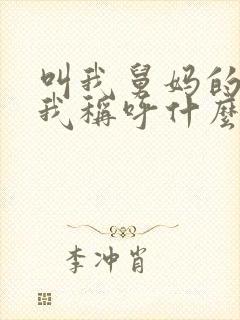 叫我舅妈的
我稱呼什麼
李冲肖